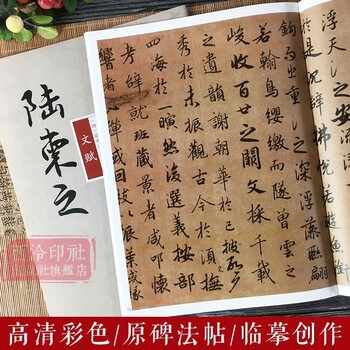 陸柬之
文賦
泠印社
社旗舰店
浮天
於是沈辭怫悅若游
鈎而出重淵之深浮藻聯翩
若翰鳥纓繳而墜曾雲之
峻收百世之闕文採千載
之遺韻謝朝華於已披啓夕
秀於未振觀古今於須臾撫
四海於一瞬然後選義按部
考辭就班藏景者咸叩懷
響者
高清彩色/原碑法帖/临摹创作